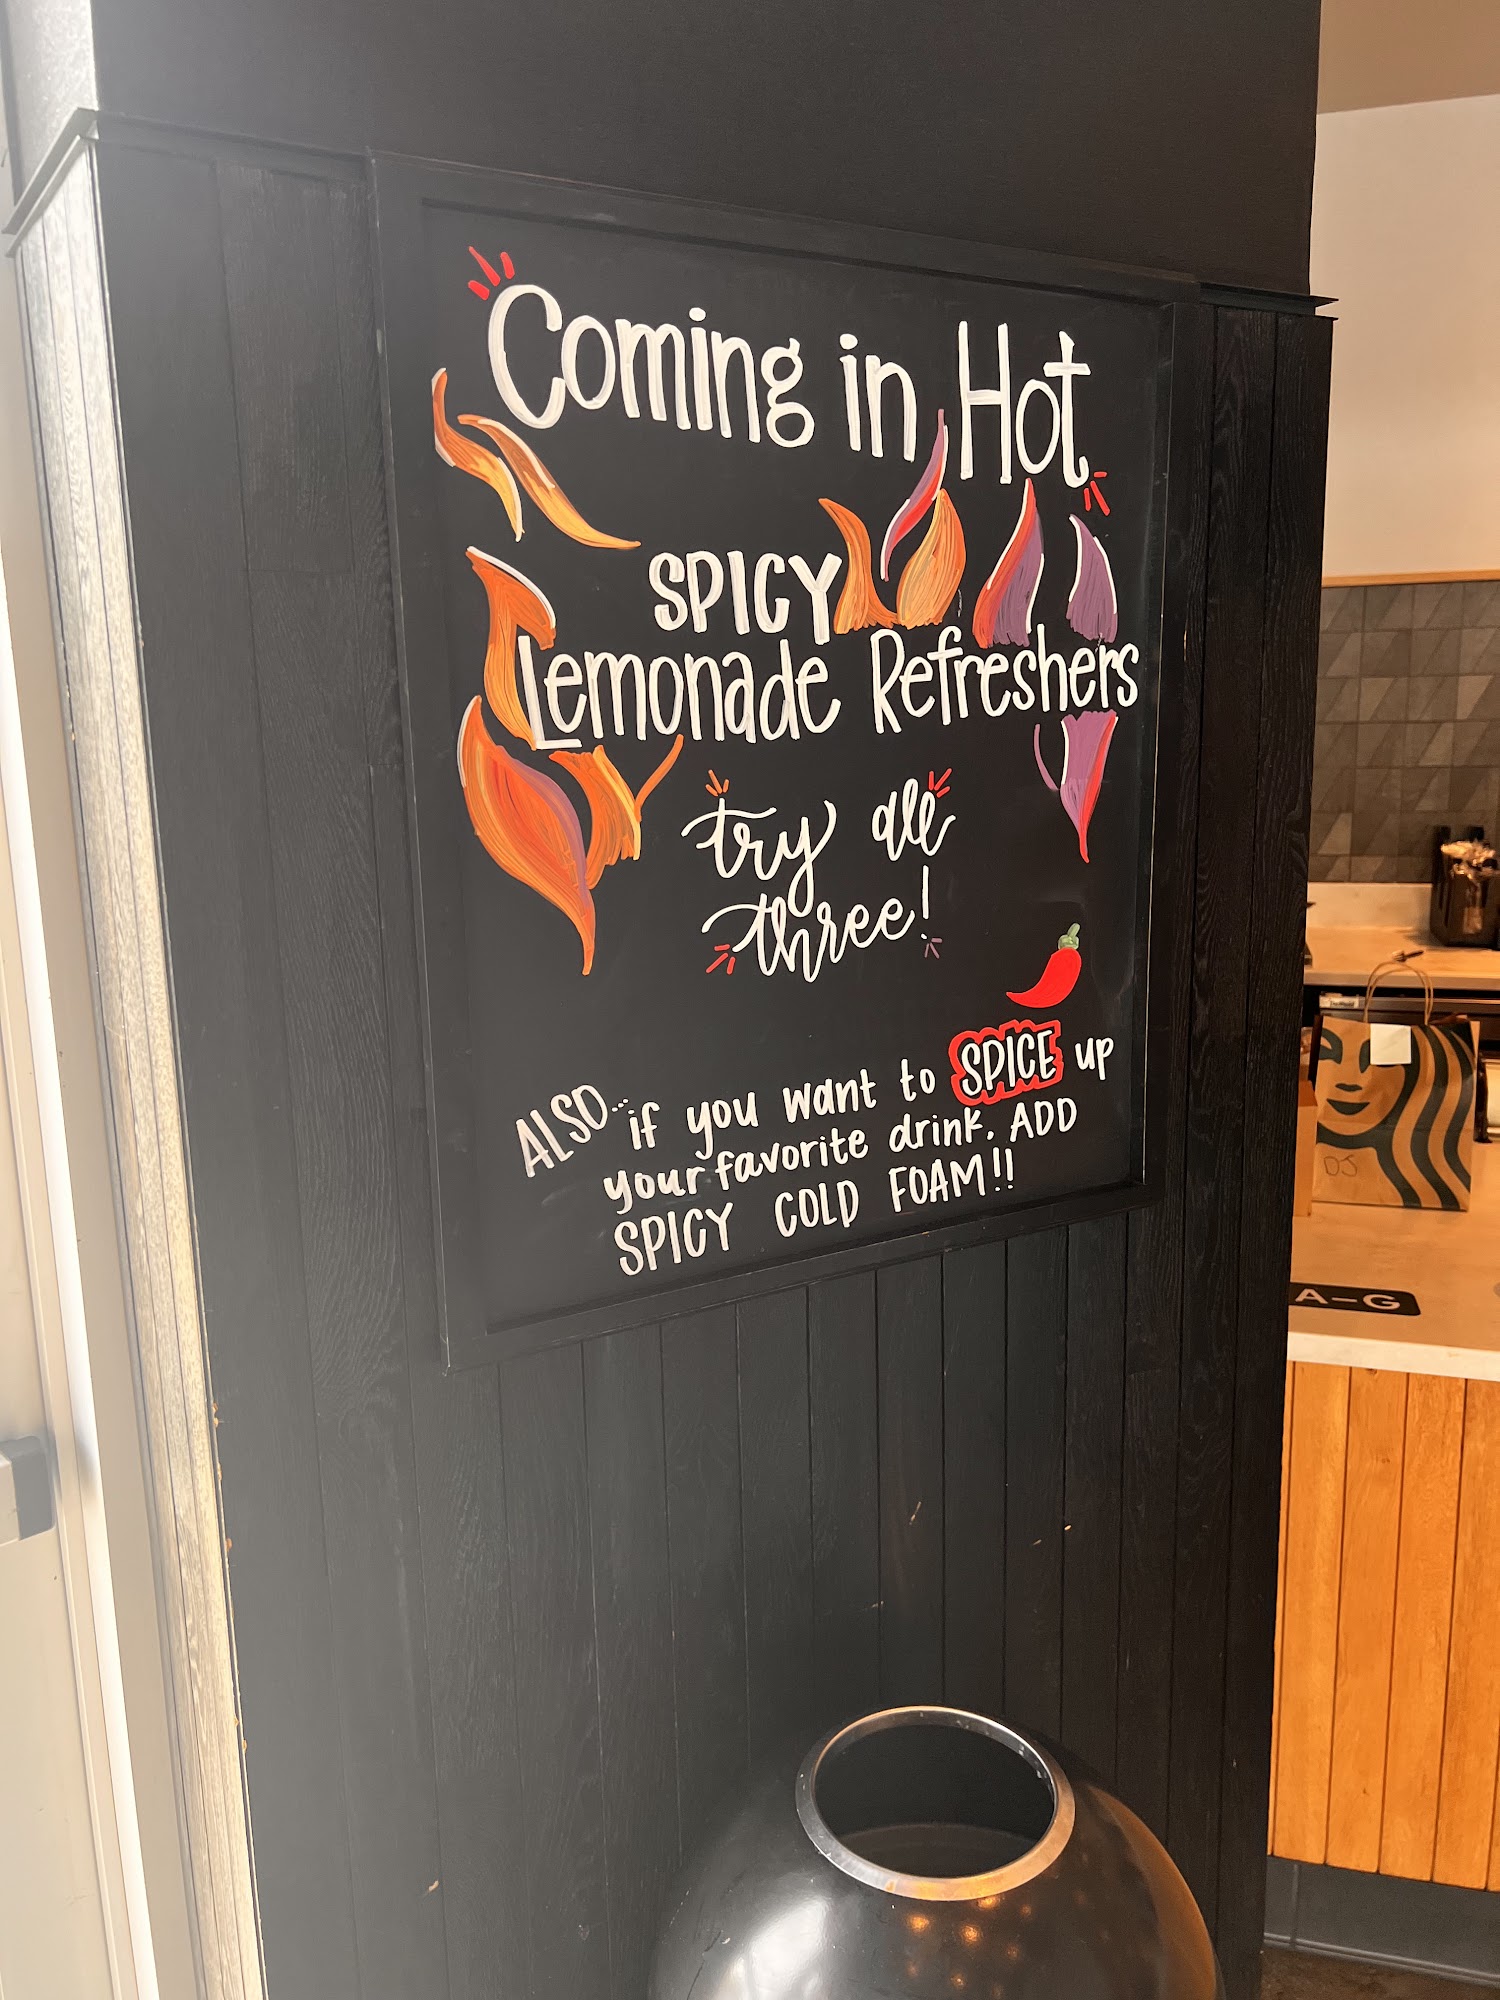 Coming in Hot
SPICY
Lemonade Refreshers
try all
three!
ALSO...if you want to SPICE up
your favorite drink. ADD
SPICY COLD FOAM!!
DJ
A-G